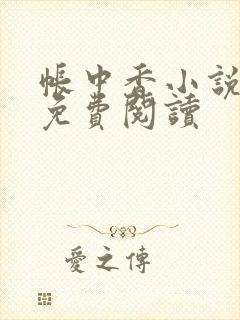 帳中香小說
免費閱讀
愛之傳